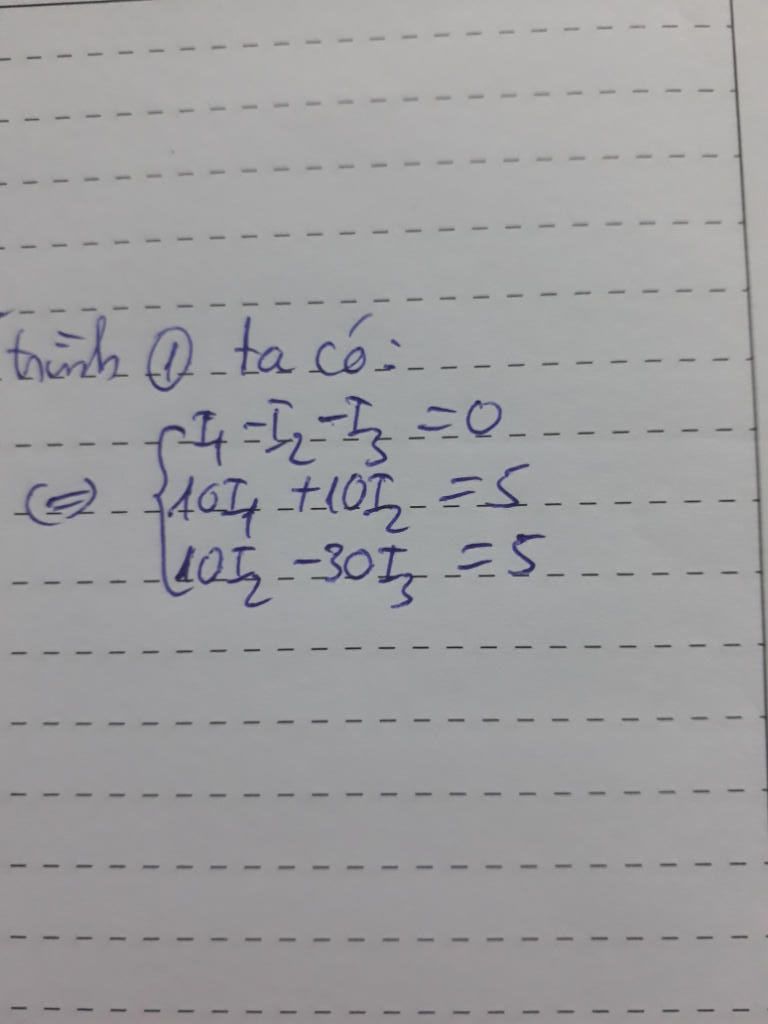 trình ① ta có:
I₁ - I₂ - I₃ = 0
(=) 10I₁ + 10I₂ = 5
10I₂ - 30I₃ = 5